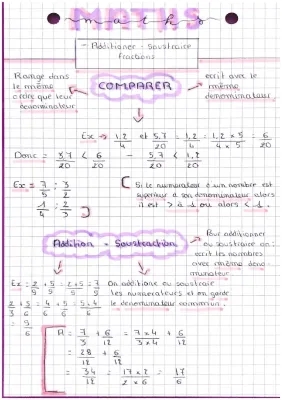 MATHS
maths
- Additionner - Soustraire
fractions
Range dans
le même
ordre que leur
dénominateur
COMPARER
écrit avec le
même
dénominateur
Ex → 1,2/4 et 5,7/20 = 1,2/4 = 1,2 x 5/4 x 5 = 6/20
Donc = 5,7/20 < 6/20 - 5,7/20 < 1,2/20
Ex = 7/5 : 3/2
1/4 : 2/3
Si le numérateur d'un nombre est
supérieur à son dénominateur alors
il est > à 1 ou alors < 1.
Addition - Soustraction
Pour additionner
ou soustraire on :
écrit les nombres
avec même déno-
minateur
Ex : 2/9 + 5/9 = 2+5/9 = 7/9
On additione ou soustrait
les numérateurs et on garde
le dénominateur commun.
2/3 + 5/6 = 4/6 + 5/6 = 5+4/6
= 9/6
A = 7/3 + 6/12 = 7x4/3x4 + 6/12
= 28/12 + 6/12
= 34/12 = 17x2/2x6 = 17/6